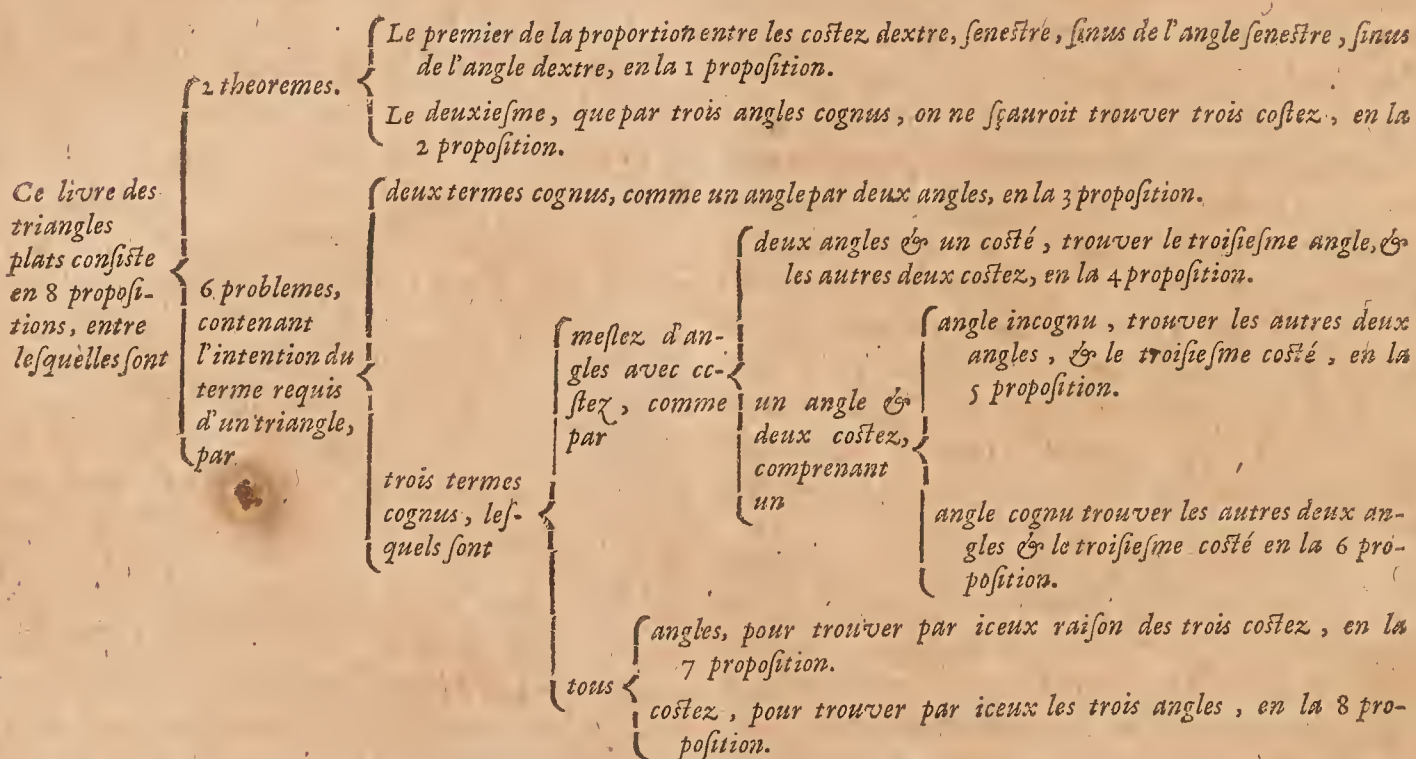 Ce livre des
triangles
plats conſiſte
en 8 propoſi-
tions, entre
leſquèlles ſont
2 theoremes.
Le premier de la proportion entre les coſtez dextre, ſeneſtre, ſinus de l'angle ſeneſtre, ſinus
de l'angle dextre, en la 1 propoſition.
Le deuxieſme, que par trois angles cognus, on ne ſçauroit trouver trois coſtez, en la
2 propoſition.
6 problemes,
contenant
l'intention du
terme requis
d'un triangle,
par
deux termes cognus, comme un angle par deux angles, en la 3 propoſition.
trois termes
cognus, leſ-
quels ſont
meſlez d'an-
gles avec co-
ſtez, comme
par
deux angles & un coſté, trouver le troiſieſme angle, &
les autres deux coſtez, en la 4 propoſition.
un angle &
deux coſtez,
comprenant
un
angle incognu, trouver les autres deux
angles, & le troiſieſme coſté, en la
5 propoſition.
angle cognu trouver les autres deux an-
gles & le troiſieſme coſté en la 6 pro-
poſition.
tous
angles, pour trouver par iceux raiſon des trois coſtez, en la
7 propoſition.
coſtez, pour trouver par iceux les trois angles, en la 8 pro-
poſition.